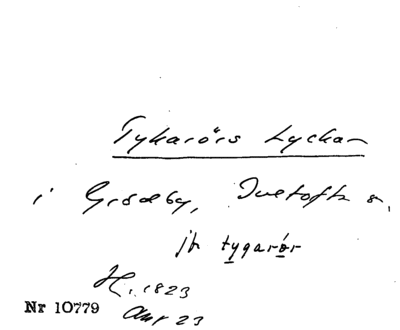 Tykarörs Lyckan
i Grödeby, Ivetofta s.
jfr tygarör
H. 1823
Nr 10779
Akt 23